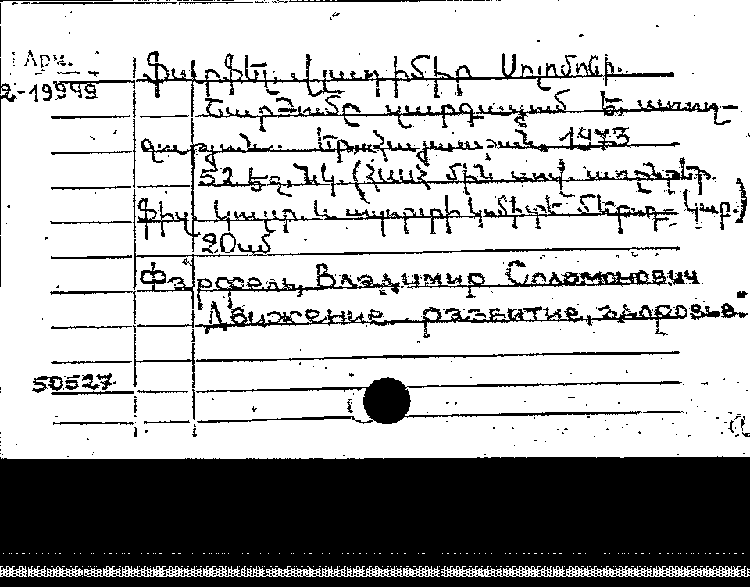 Арм.
2-19999
Ֆարֆել, Վլադիմիր Սոլոմոնի.
Շարժումը զարգացում է, առող-
ջություն. Երևան, 1973
52 էջ, նկ. (ՀԱԱՀ մին. առ.
ֆիզ. կուլտ. և սպորտի կոմիտե մեթոդ. կաբ.)
20սմ
Фарфель, Владимир Соломонович
Движение - развитие, здоровье.
50527